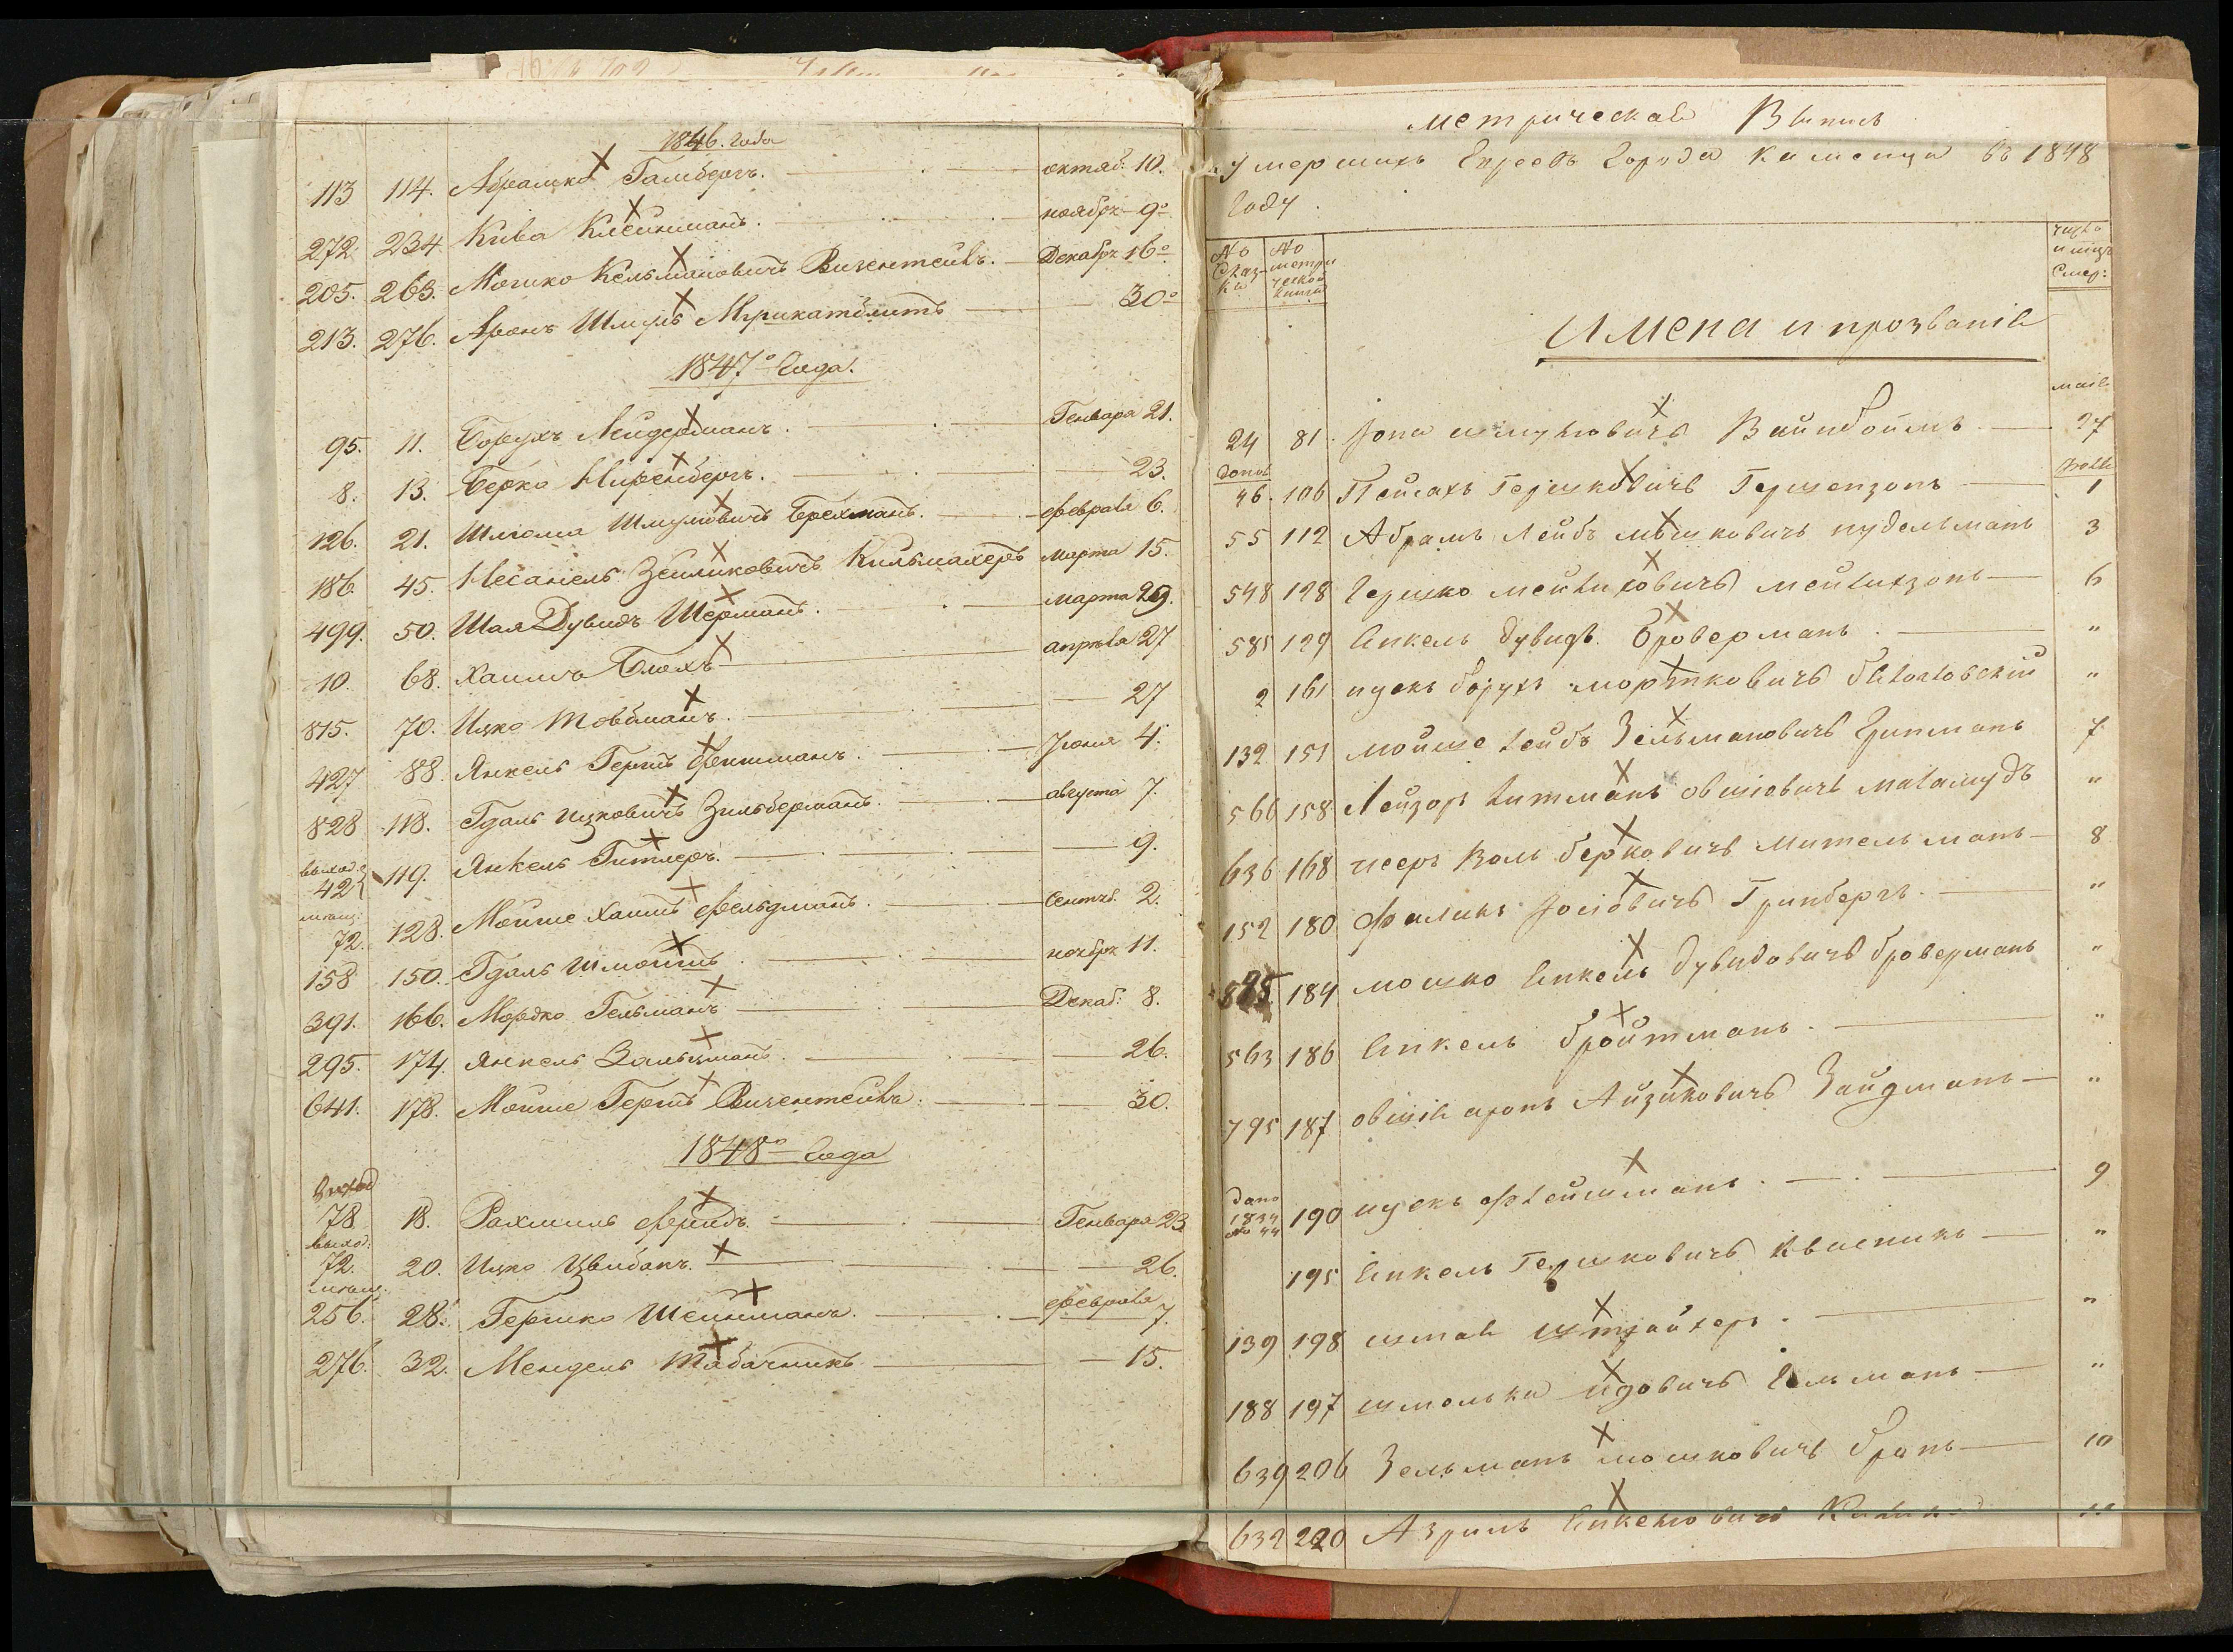 1846. Года
113 114. Абрашко Гамбергъ. октяб: 10.
272. 234. Кива Клейнманъ. ноября 9о
205. 263. Мошко Кельмановичъ Визентейнъ. Декабря 16о
213. 276. Аронъ Шмуль 30о
1847о Года.
95. 11. Борухъ Лейдерманъ. Генваря 21.
8. 13. Берко Ниренбергъ. 23.
126. 21. Шлиома Шмулювичъ Брехманъ. февраля 6.
186. 45. Несанель Зейликовичъ Кильмахеръ марта 15.
499. 50. Шая Дувидъ Шерманъ. марта 29.
10. 68. Хаимъ Блехъ апрѣля 27
815. 70. Ицко Товбманъ. 27
427 88. Янкель Гершъ Фитманъ. Іюня 4.
828 118. Гдаль Ицковичъ Зильберманъ. августа 7.
выход:
42 119. Янкель Гитлеръ. 9.
мѣщ:
72. 128. Мойше Хаимъ Фельдманъ. Сентяб. 2.
158 150. Гдаль Шмойшъ ноября 11.
391. 166. Мордко Гельманъ Декаб: 8.
295. 174. Янкель Зальцманъ. 26.
641. 178. Мойше Гершъ Визентейнъ. 30.
1848о Года
Выход
78 18. Рахмиль Фридъ. Генваря 23
выход:
72. 20. Ицко Цвибакъ. 26.
мѣщ.
256. 28. Гершко Шейнманъ. февраля 7.
276. 32. Мендель Табачникъ 15.
Метрическая Выпись
умершихъ Евреевъ Города Каменца въ 1848
Году.
No Сказки No метрической книги число и мѣсц Смер:
Имена и прозванія
маія
24 81. Іона Шмулювичъ Вайнбоймъ 27
допол Іюля
46. 106 Пейсахъ Гершковичъ Гершензонъ 1
55 112 Абрамъ Лейбъ Мошковичъ Нудельманъ 3
548 128 Гершко Мейлиховичъ Мейлихзонъ 6
585 129 Янкель Дувидъ Броверманъ. "
2 161 Нусенъ Борухъ Мортковичъ "
132 151 Мойше Лейбъ Зельмановичъ Гринманъ 7
566 158 Лейзоръ Литманъ Овшіовичъ Маламудъ "
636 168 Исеръ Воль Берковичъ Мительманъ 8
152 180 Фаликъ Іосіовичъ Гринбергъ. "
184 Мошко Янкель Дувидовичъ Броверманъ "
563 186 Янкель Бройтманъ. "
795 187 Овшія Аронъ Айзиковичъ Зайдманъ "
дано 1834 No 44 190 Нусенъ Флейшманъ. 9
195 Янкель Гершковичъ Квасникъ "
139 198 Шмая Штрайхеръ. "
188 197 Шмелька Идовичъ Гельманъ "
639 206 Зельманъ Мошковичъ Бронъ 10
632 220 Азриль Янкелювичъ